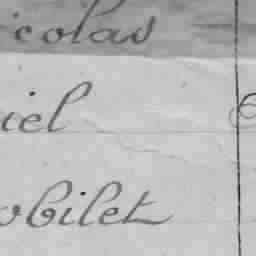 icolas
iel
obilet